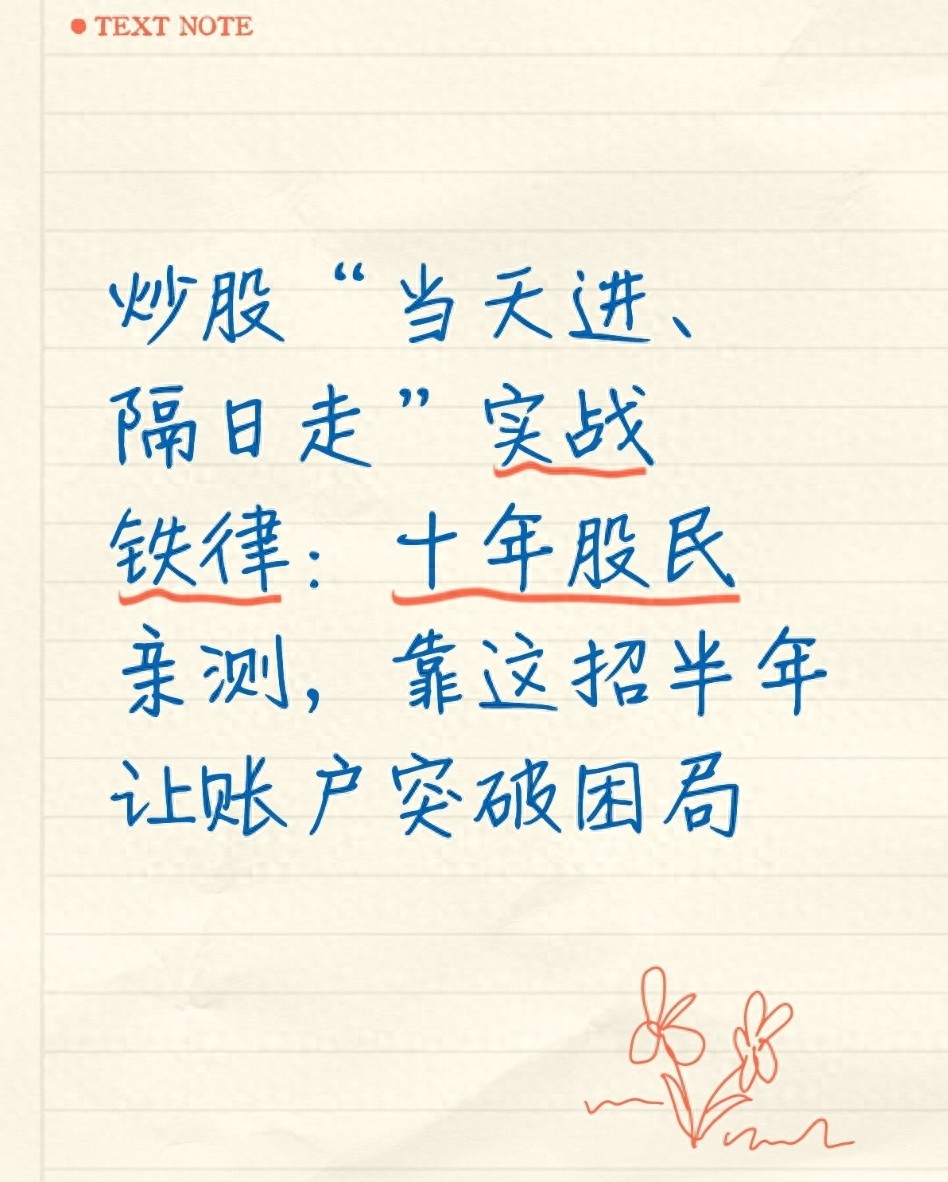 TEXT NOTE
炒股“当天进、
隔日走”实战
铁律：十年股民
亲测，靠这招半年
让账户突破困局